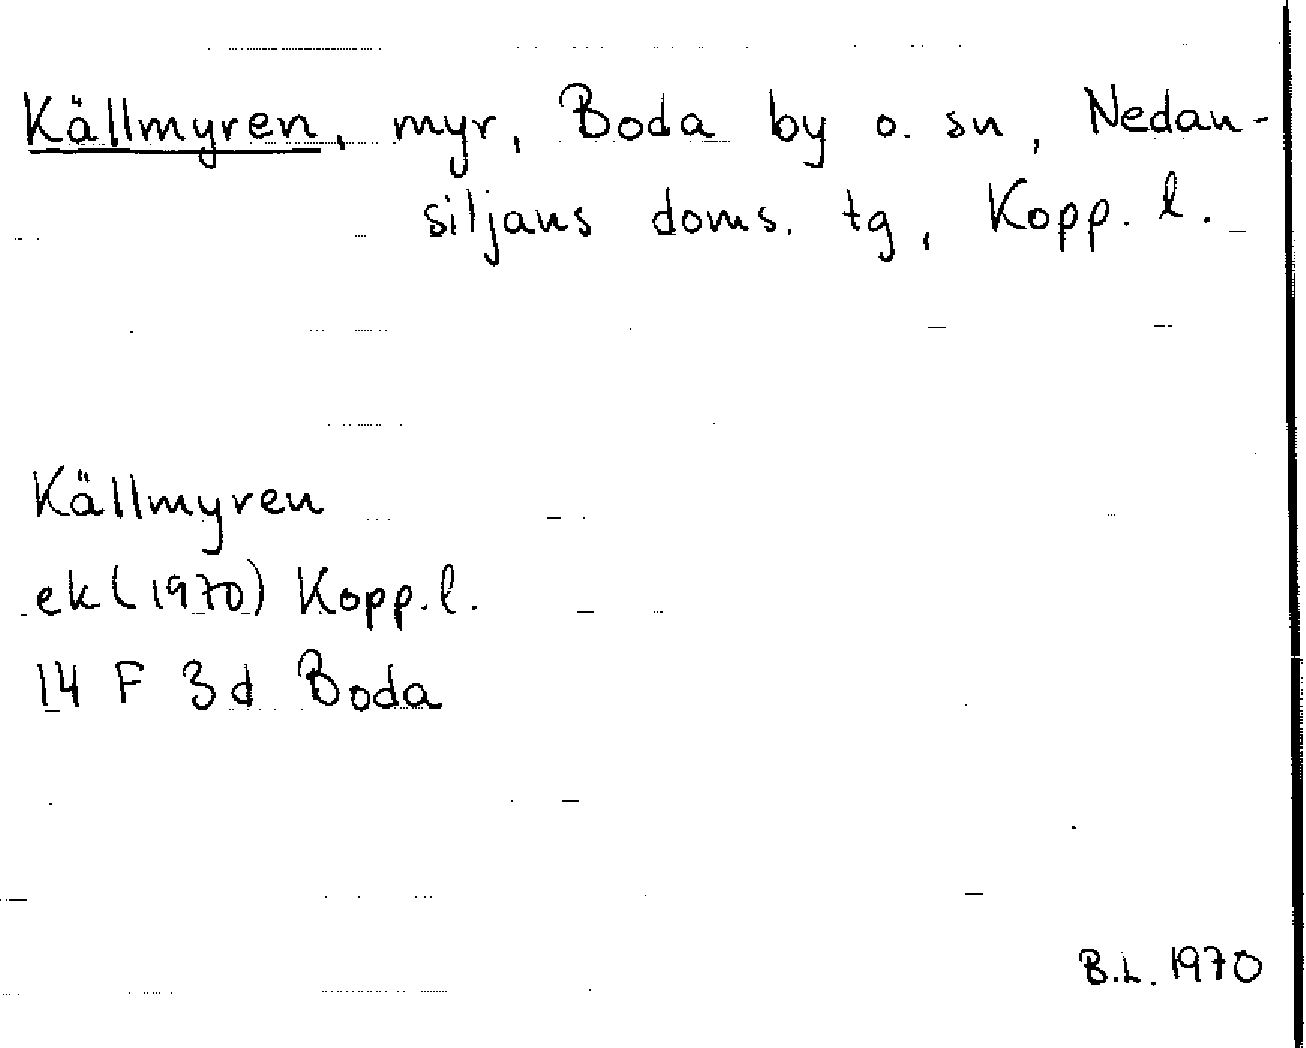 Källmyren, myr, Boda by o. sn, Nedan-
siljans doms. tg, Kopp. l.
Källmyren
ek (1970) Kopp. l.
14 F 3d Boda
B.L. 1970